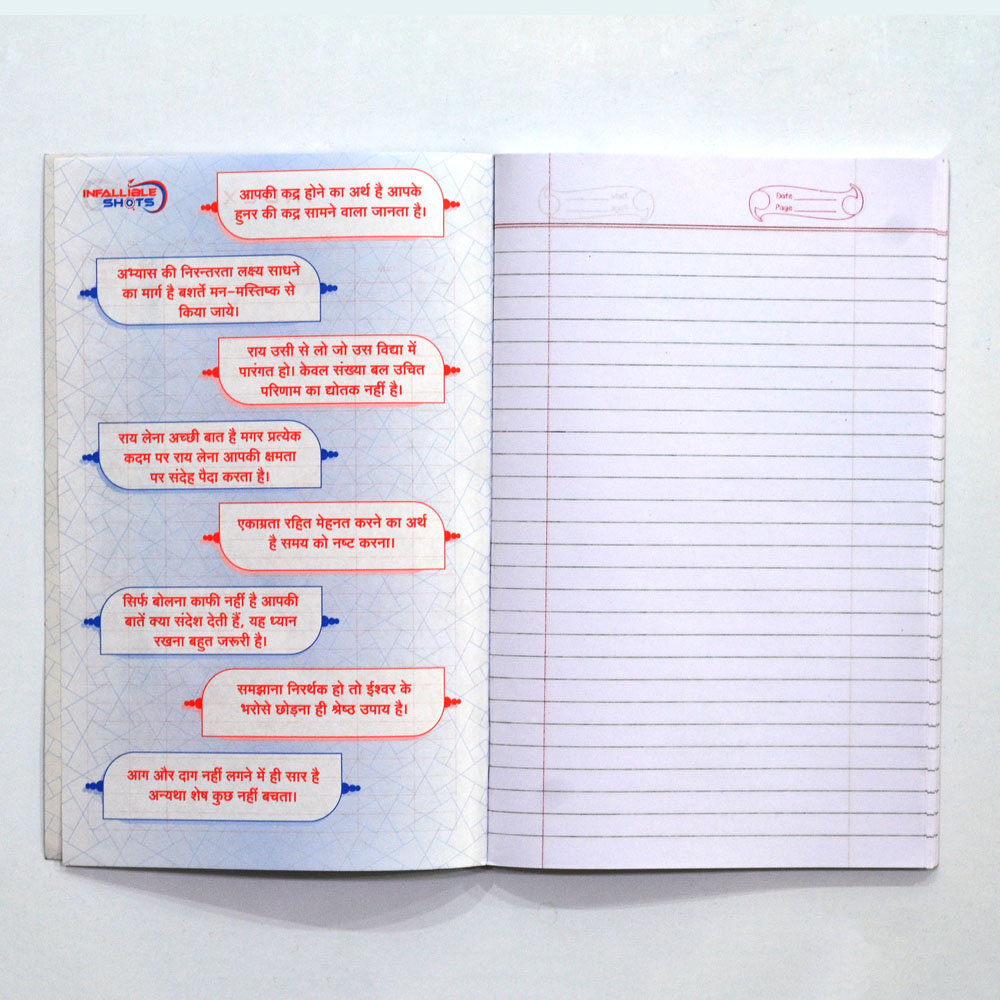 INFALLIBLE
SHOTS
आपकी कद्र होने का अर्थ है आपके
हुनर की कद्र सामने वाला जानता है।
अभ्यास की निरन्तरता लक्ष्य साधने
का मार्ग है बशर्ते मन-मस्तिष्क से
किया जाये।
राय उसी से लो जो उस विद्या में
पारंगत हो। केवल संख्या बल उचित
परिणाम का द्योतक नहीं है।
राय लेना अच्छी बात है मगर प्रत्येक
कदम पर राय लेना आपकी क्षमता
पर संदेह पैदा करता है।
एकाग्रता रहित मेहनत करने का अर्थ
है समय को नष्ट करना।
सिर्फ बोलना काफी नहीं है आपकी
बातें क्या संदेश देती हैं, यह ध्यान
रखना बहुत जरूरी है।
समझाना निरर्थक हो तो ईश्वर के
भरोसे छोड़ना ही श्रेष्ठ उपाय है।
आग और दाग नहीं लगने में ही सार है
अन्यथा शेष कुछ नहीं बचता।
Date
Page